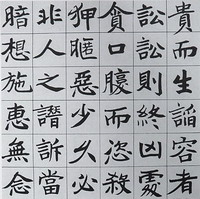 貴而生諂容者
訟訟則終凶處
貪口腹而恣殺
狎暱惡少久必
非人之譖訴當
暗想施惠無念